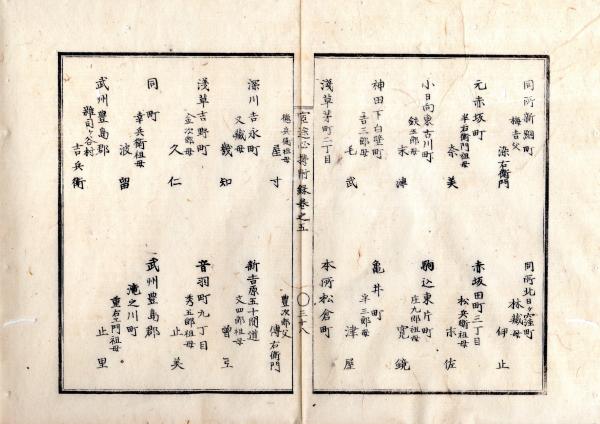 同所新網町
梅吉父
染右衛門
元赤坂町
半右衛門祖母
奈美
小日向東古川町
鉄五郎母
末津
神田下白壁町
吉三郎母
毛武
浅草茅町二丁目
徳兵衛祖母
屋寸
深川吉永町
又蔵母
幾知
淺草吉野町
金次郎母
久仁
同町
幸兵衛祖母
波留
武州豊島郡
雜司ヶ谷村
吉兵衛
同所北日ヶ窪町
林蔵母
伊止
赤坂田町三丁目
松兵衛祖母
木佐
駒込東片町
庄九郎祖母
寛鏡
亀井町
半三郎母
津屋
本所松倉町
豊次郎父
傳右衛門
新吉原五十間道
文四郎祖母
曽互
音羽町九丁目
秀五郎祖母
止美
武州豊島郡
滝之川町
重右エ門祖母
止里
巻之五
〇三十八